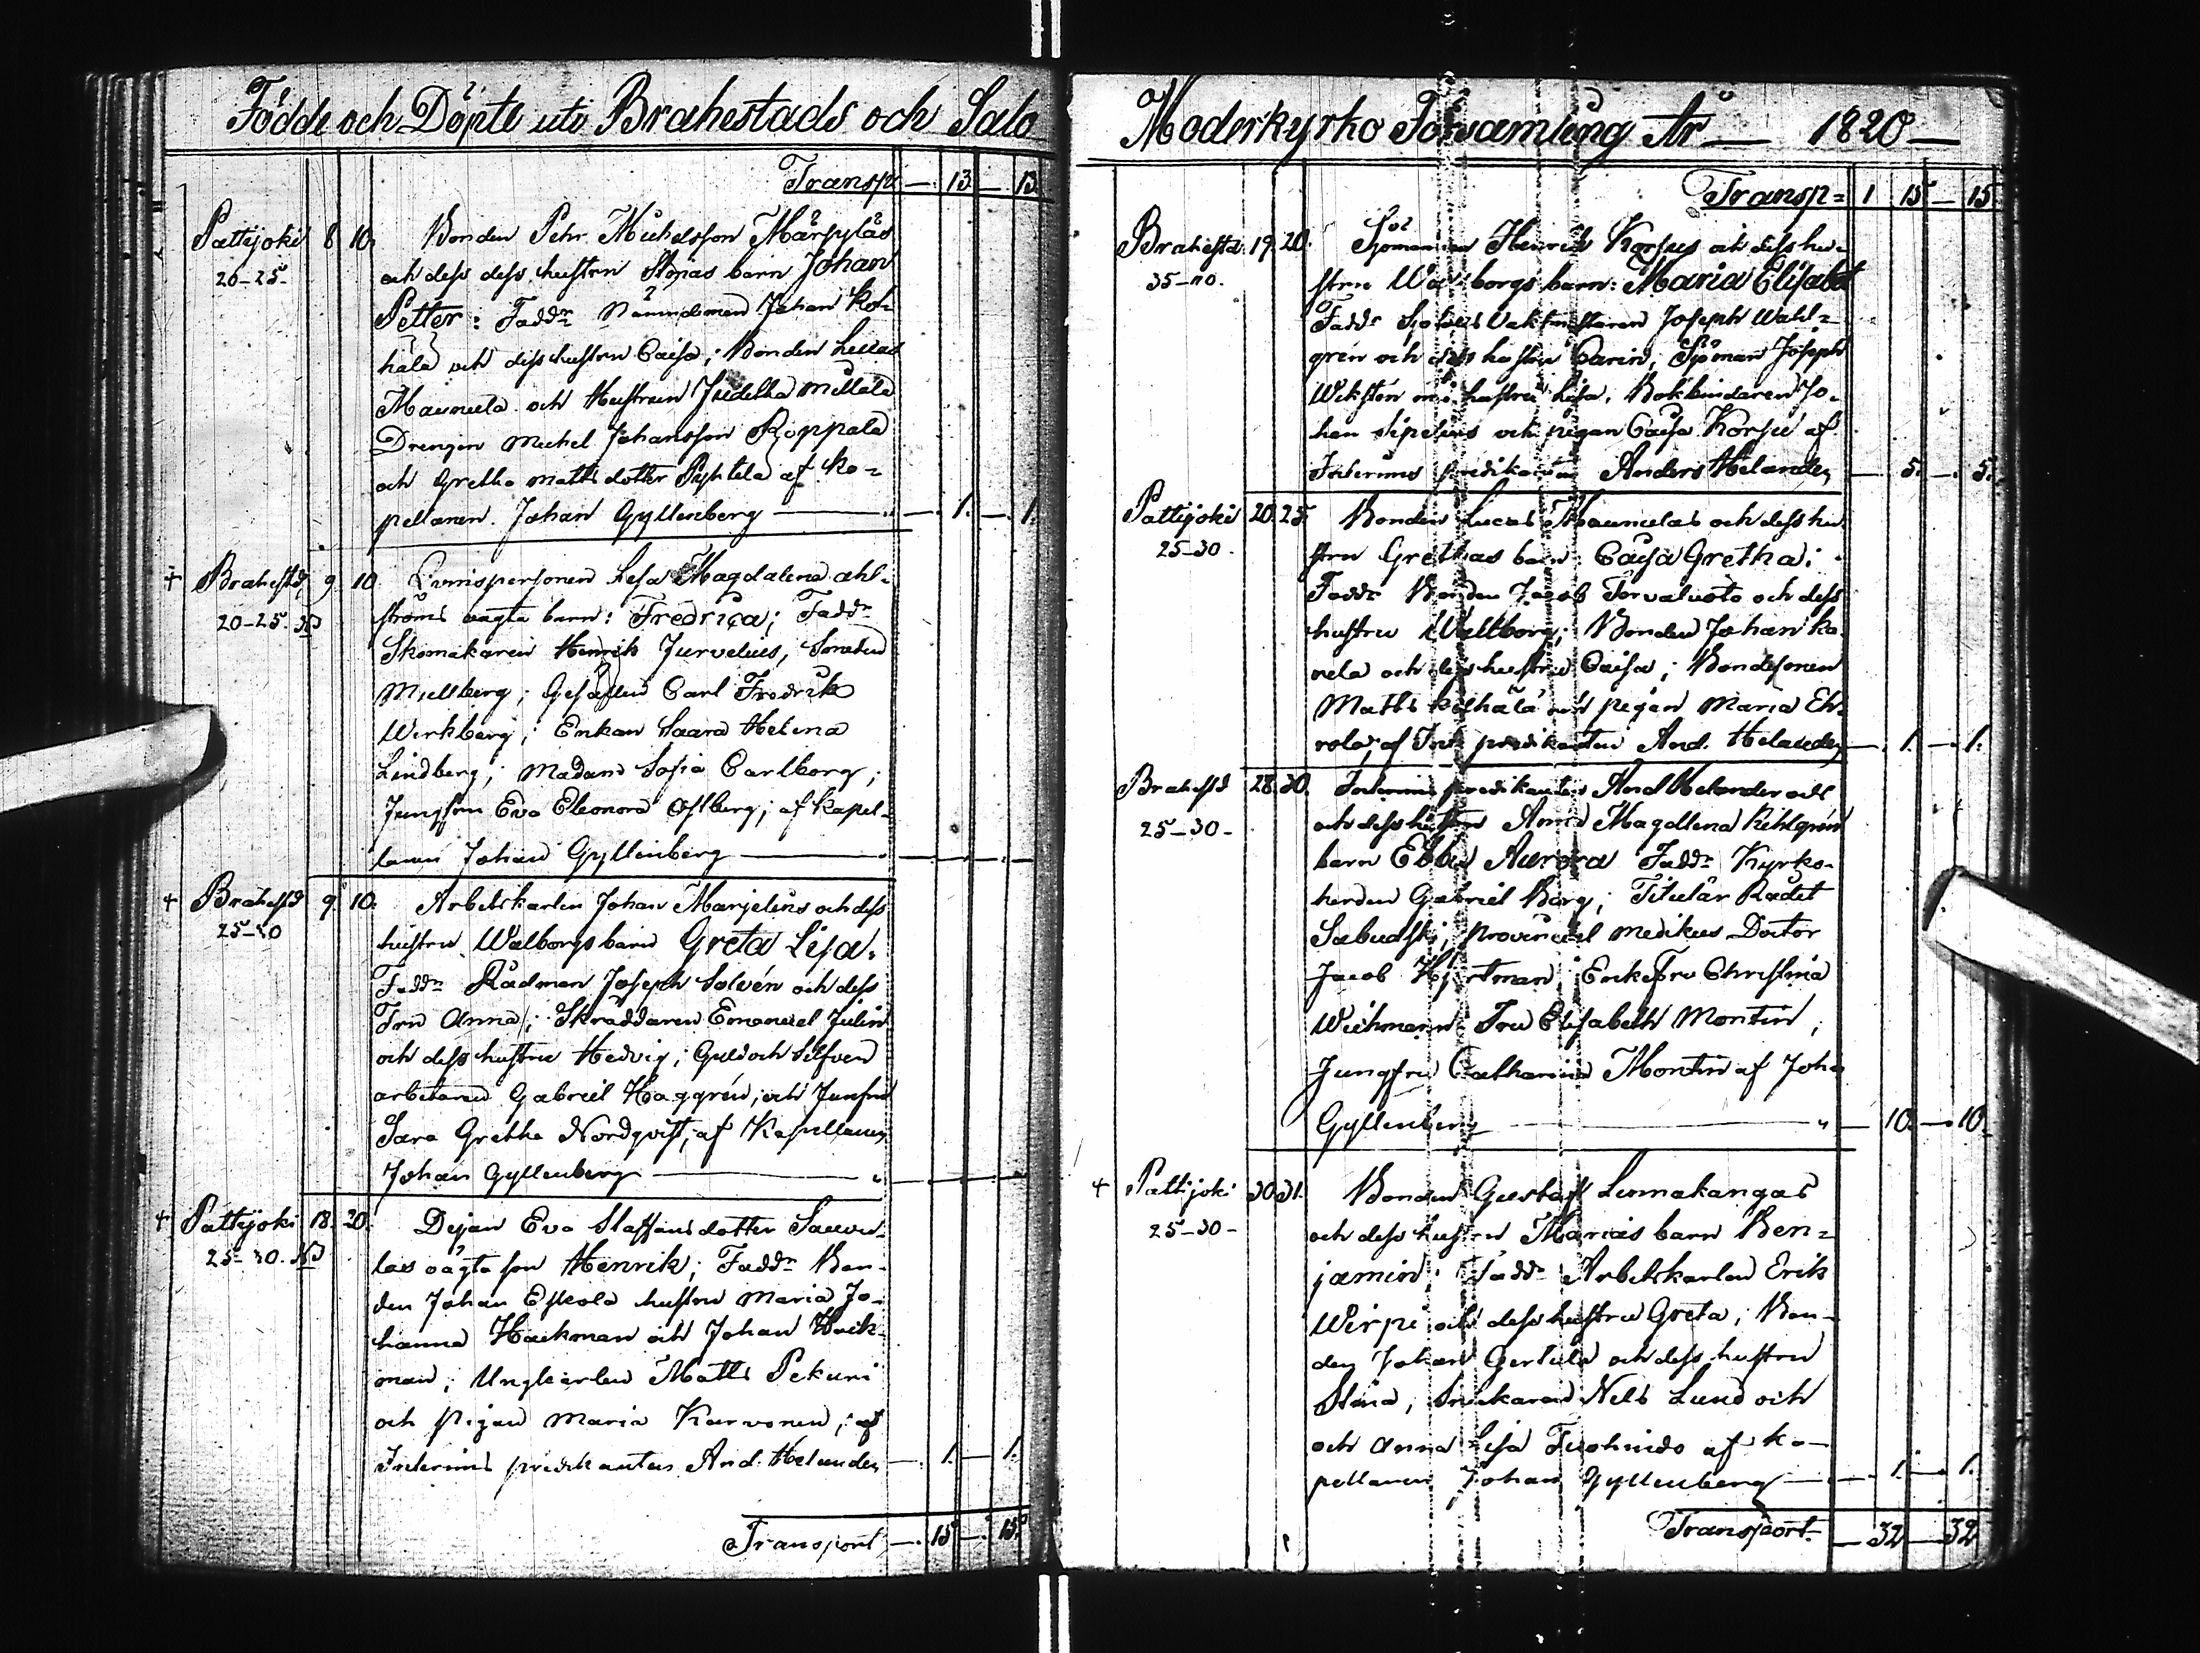 Födde och Döpte uti Brahestads och Salo
Transp – 13 – 13
Pattijoki 8 10. Bonden Pehr Michelsson Märsyläs
20-25- och dess dess hustru Stinas barn Johan
Petter: Faddr Nämndeman Johan Kol-
hala och dess hustru Caisa; Bonden Lucas
Maunula och Hustrun Fredrika Mattala
Drengen Michel Johansson Roppala
och Gretha Matts dotter Pyhtila af Ka-
pellanen Johan Gyllenberg — 1. — 1.
+ Brahestd 9 10 Qvinspersonen Lisa Magdalena Ahl-
20-25. ströms oägta barn: Fredrica; Faddr
Skomakaren Henrik Jurvelius, Smeden
Mullberg; Gesällen Carl Fredrik
Wirkberg; Enkan Saara Helena
Lindberg; Madam Sofia Carlborg;
Jungfrun Eva Eleonora Östberg; af Kapel-
lanen Johan Gyllenberg —
+ Brahestd 9. 10. Arbetskarlen Johan Marjelius och dess
25- hustru Walborgs barn Greta Lisa.
Faddr Rådman Joseph Solvén och dess
Fru Anna; Skräddaren Emanuel Julin
och dess hustru Hedvig; Guld och Silfver
arbetaren Gabriel Haggrén; och Junfru
Sara Gretha Nordqvist, af Kapellanen
Johan Gyllenberg —
+ Pattijoki 18. 20. Pejan Eva Staffans dotter Sauvu-
25-30. las oägta son Henrik; Faddr Bon-
den Johan Eskola hustru Maria Jo-
hanna Hackman och Johan Hack-
man; Ungkarlen Matts Pekuri
och Pigan Maria Karvonen; af
Interims predikanten And. Helander — 1. — 1.
Transport — 15 — 15.
Moderkyrko Församling År — 1820 —
Transp= 1 15 – 15
Brahestd. 19. 20. Sjömannen Henrik Korsus och dess hu-
35-40. stru Walborgs barn: Maria Elisabet
Faddr Vaktmästaren Joseph Wahl=
grén och dess hustru Carin; Sjöman Joseph
Wiksten och hustru Lisa, Bokbindaren Jo-
han Sipelius och pigan Caisa Korsu af
Interims predikanten Anders Helander — 5. — 5.
Pattijoki 20. 25. Bonden Lucas Maunulas och dess hu-
25-30. stru Grethas barn Caisa Gretha;
Faddr Bonden Jacob Torvaluoto och dess
hustru Wallborg; Bonden Johan Ko-
vela och dess hustru Caisa; Bondesonen
Matts Kolhala och pigan Maria Eh-
rola, af Int. predikanten And. Helander — 1. — 1.
Brahestd 28. 30. Interims predikanten And Helander och
25-30- och dess hustru Anna Magdlena Kihlgrén
barn Ebba Aurora Faddr Kyrko-
herden Gabriel Borg; Titulär Rådet
Sabudski; provincial medikus Doctor
Jacob Hjertman; Enkefru Christina
Wichmann Fru Elisabeth Montin;
Jungfru Catharina Montin af Joha
Gyllenberg — 10. — 10.
+ Pattijoki 30. 31. Bonden Gustaf Linnakangas
25-30- och dess hustru Marias barn Ben=
jamin; Faddr Arbetskarlen Erik
Wirpi och dess hustru Greta; Bon-
den Johan Gertula och dess hustru
Stina; Snickaren Nels Lund och
och Anna Lisa af Ka-
pellanen Johan Gyllenberg — 1. — 1.
Transport — 32 — 32